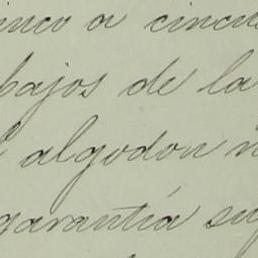 cinco a cincu
bajos de la
algodon
garantía su